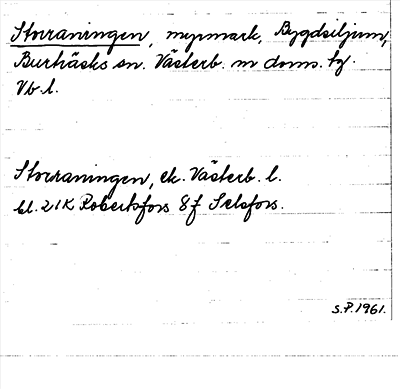 Storraningen, myrmark, Bygdsiljum,
Burträsks sn. Västerb. m doms. tg.
Vb. l.
Storraningen, ek. Västerb. l.
bl. 21K Robertsfors 8f Selsfors.
S.P. 1961.